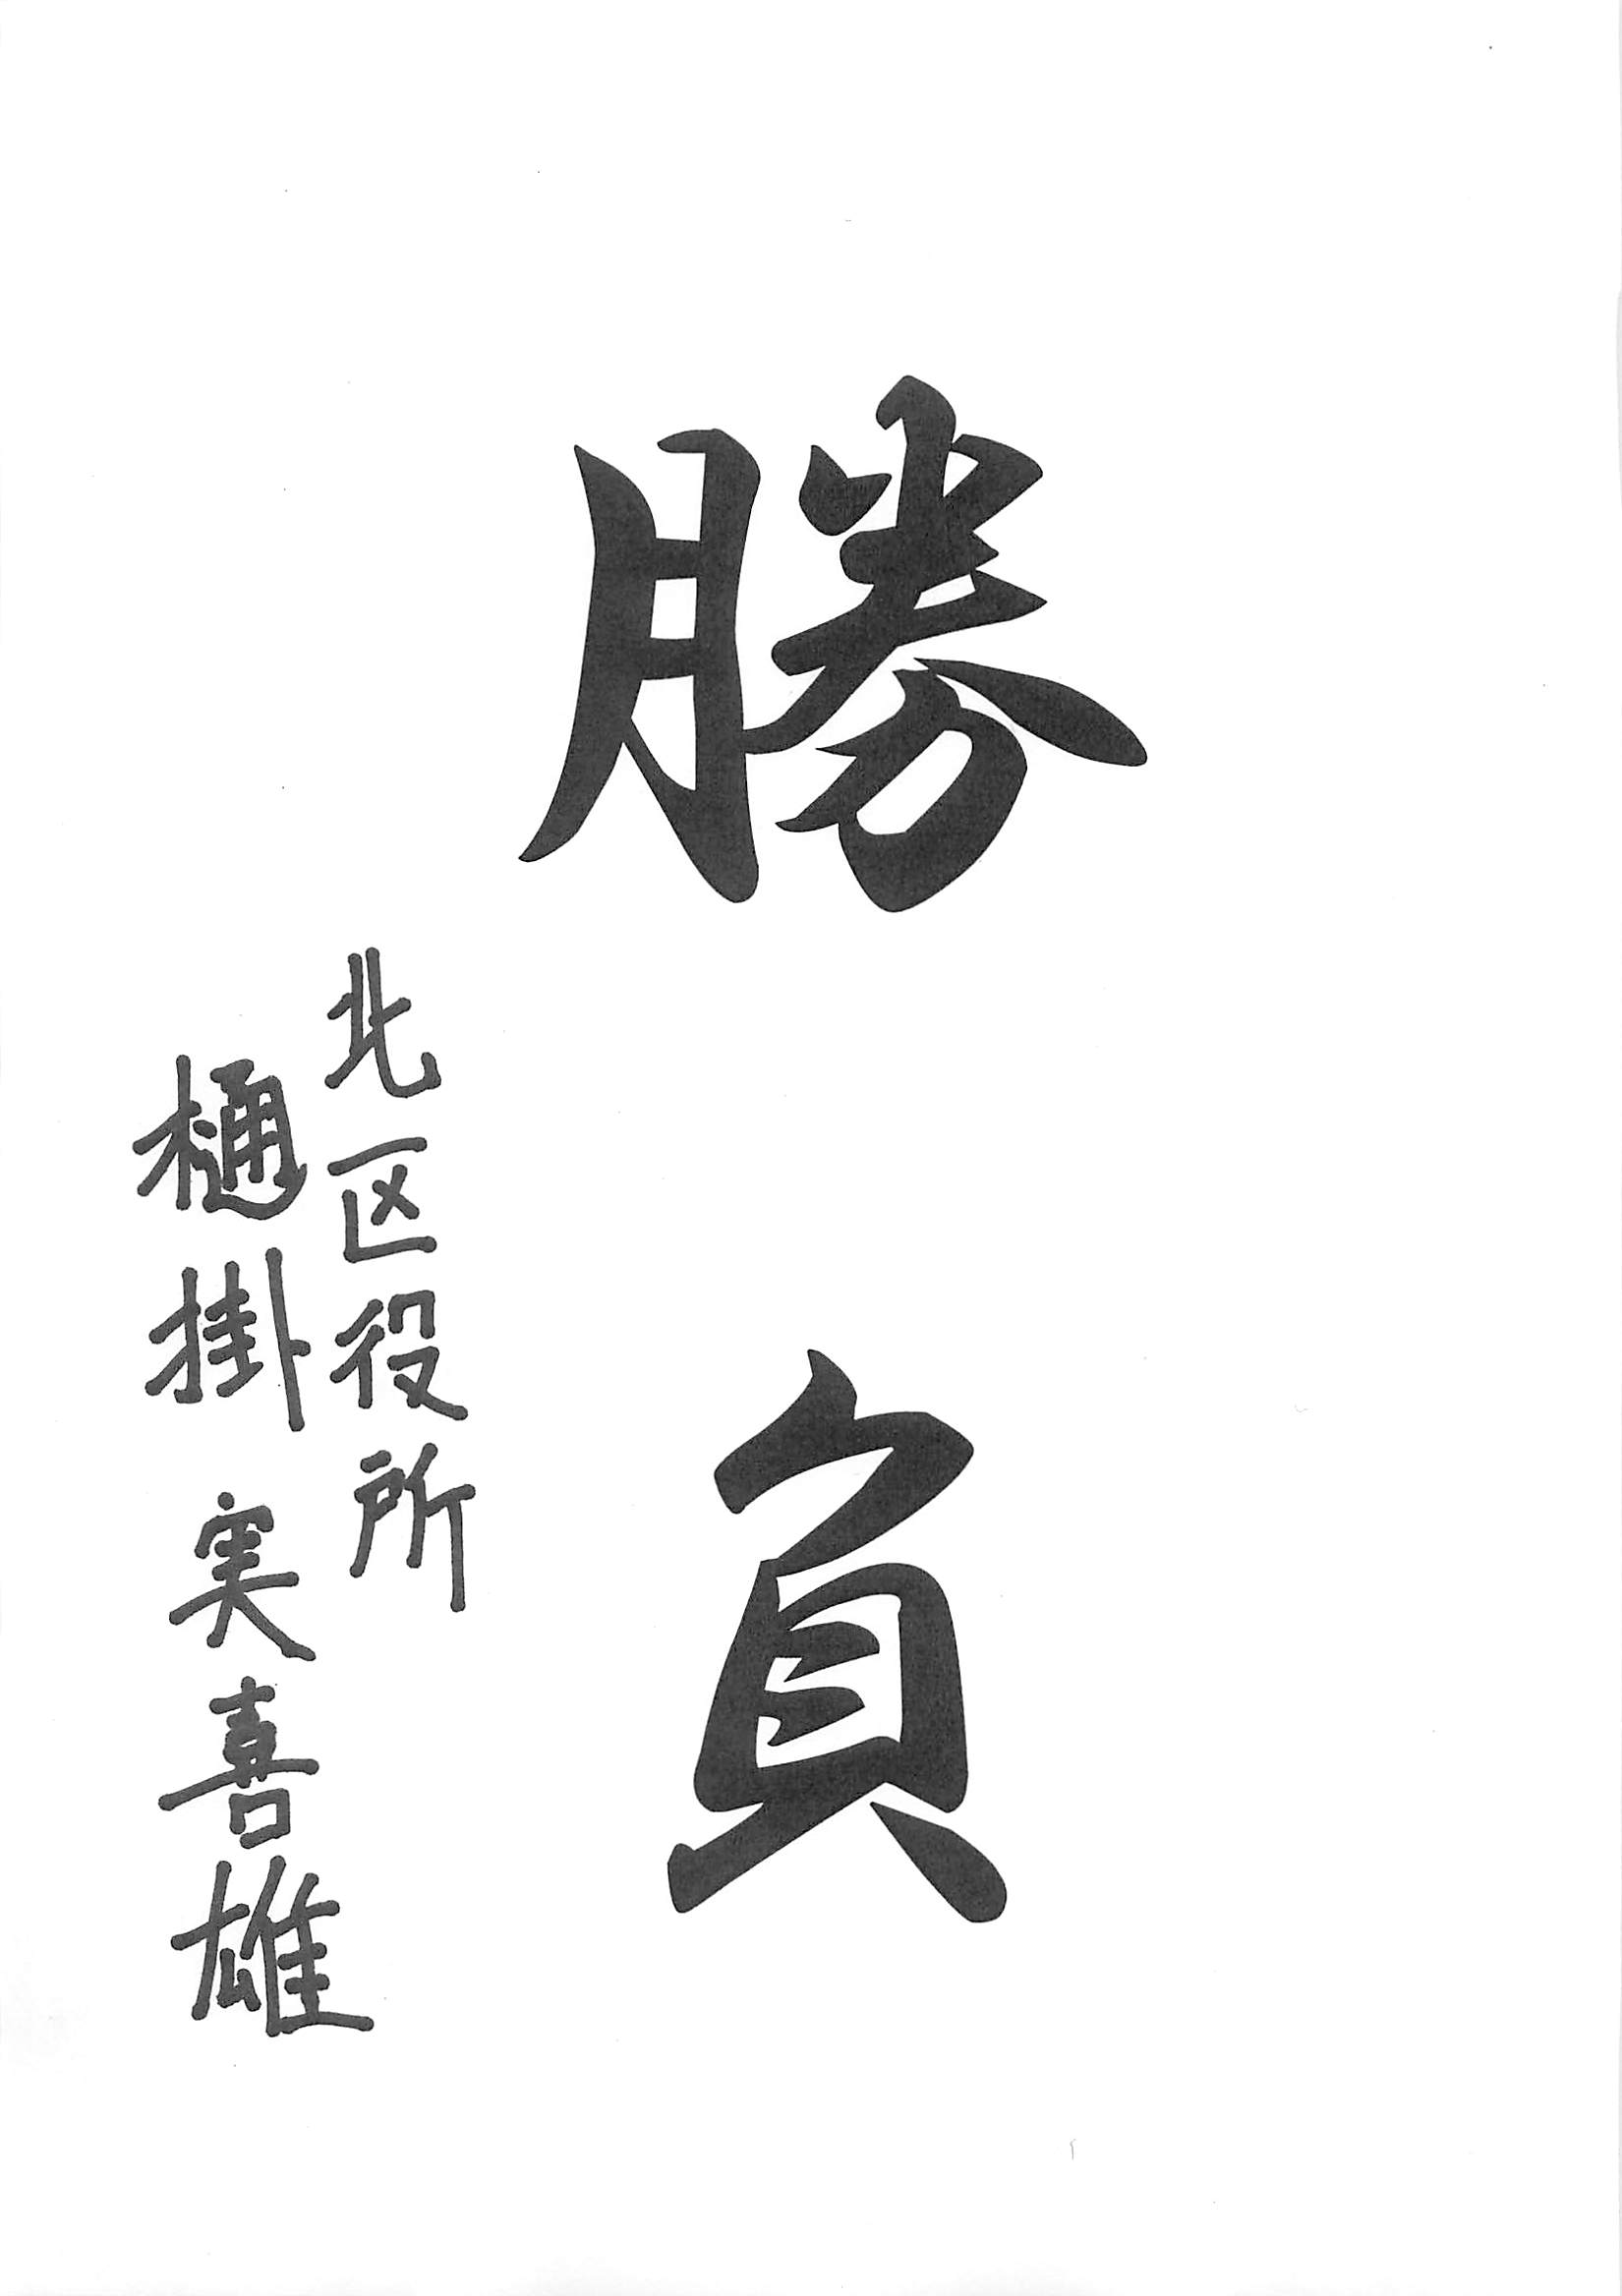 勝負
北区役所
樋掛 実喜雄